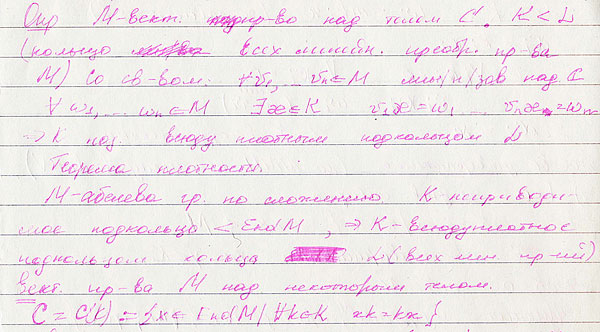 Опр М-вект. пр-во над телом C. K < L
(кольцо всех линейн. преобр. пр-ва
M) со св-вом: ∀v₁, ... vₙ ∈ M лин/н/зав над C
∀ w₁, ... wₙ ∈ M ∃æ ∈ K v₁æ = w₁ ... vₙæ = wₙ
⇒ K наз всюду плотным подкольцом L
Теорема плотности.
М-абелева гр. по сложению K-неприводи-
мое подкольцо < End M, ⇒ K-всюду плотное
подкольцом кольца L (всех лин пр-ий)
вект. пр-ва M над некоторым телом.
C = C(k) = {x ∈ End M | ∀k∈K xk = kx }